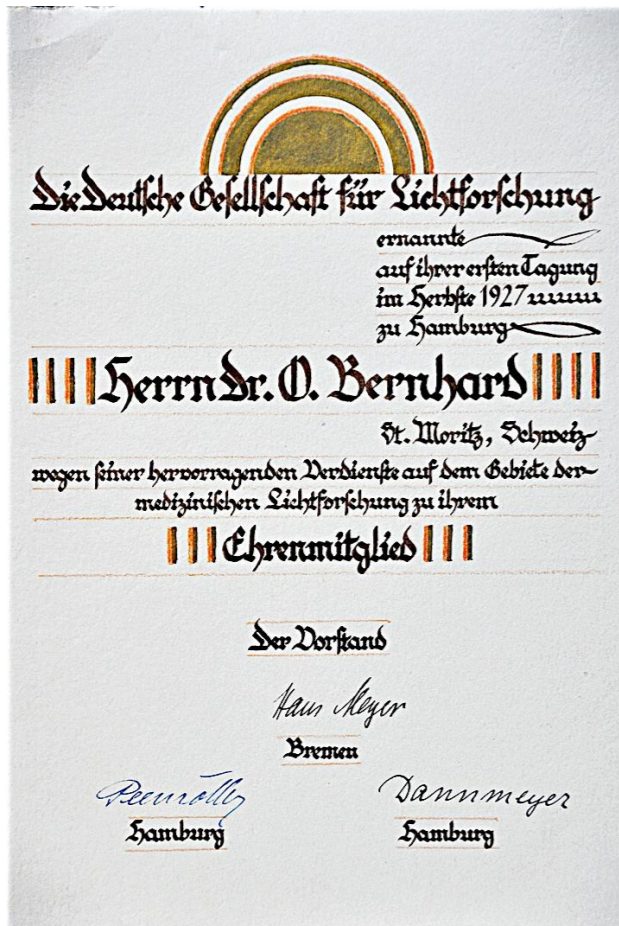 Die Deutsche Gesellschaft für Lichtforschung
ernannte
auf ihrer ersten Tagung
im Herbste 1927
zu Hamburg
Herrn Dr. O. Bernhard
St. Moritz, Schweiz
wegen seiner hervorragenden Verdienste auf dem Gebiete der
medizinischen Lichtforschung zu ihrem
Ehrenmitglied
Der Vorstand
Hans Meyer
Bremen
Dannmeyer
Hamburg Hamburg